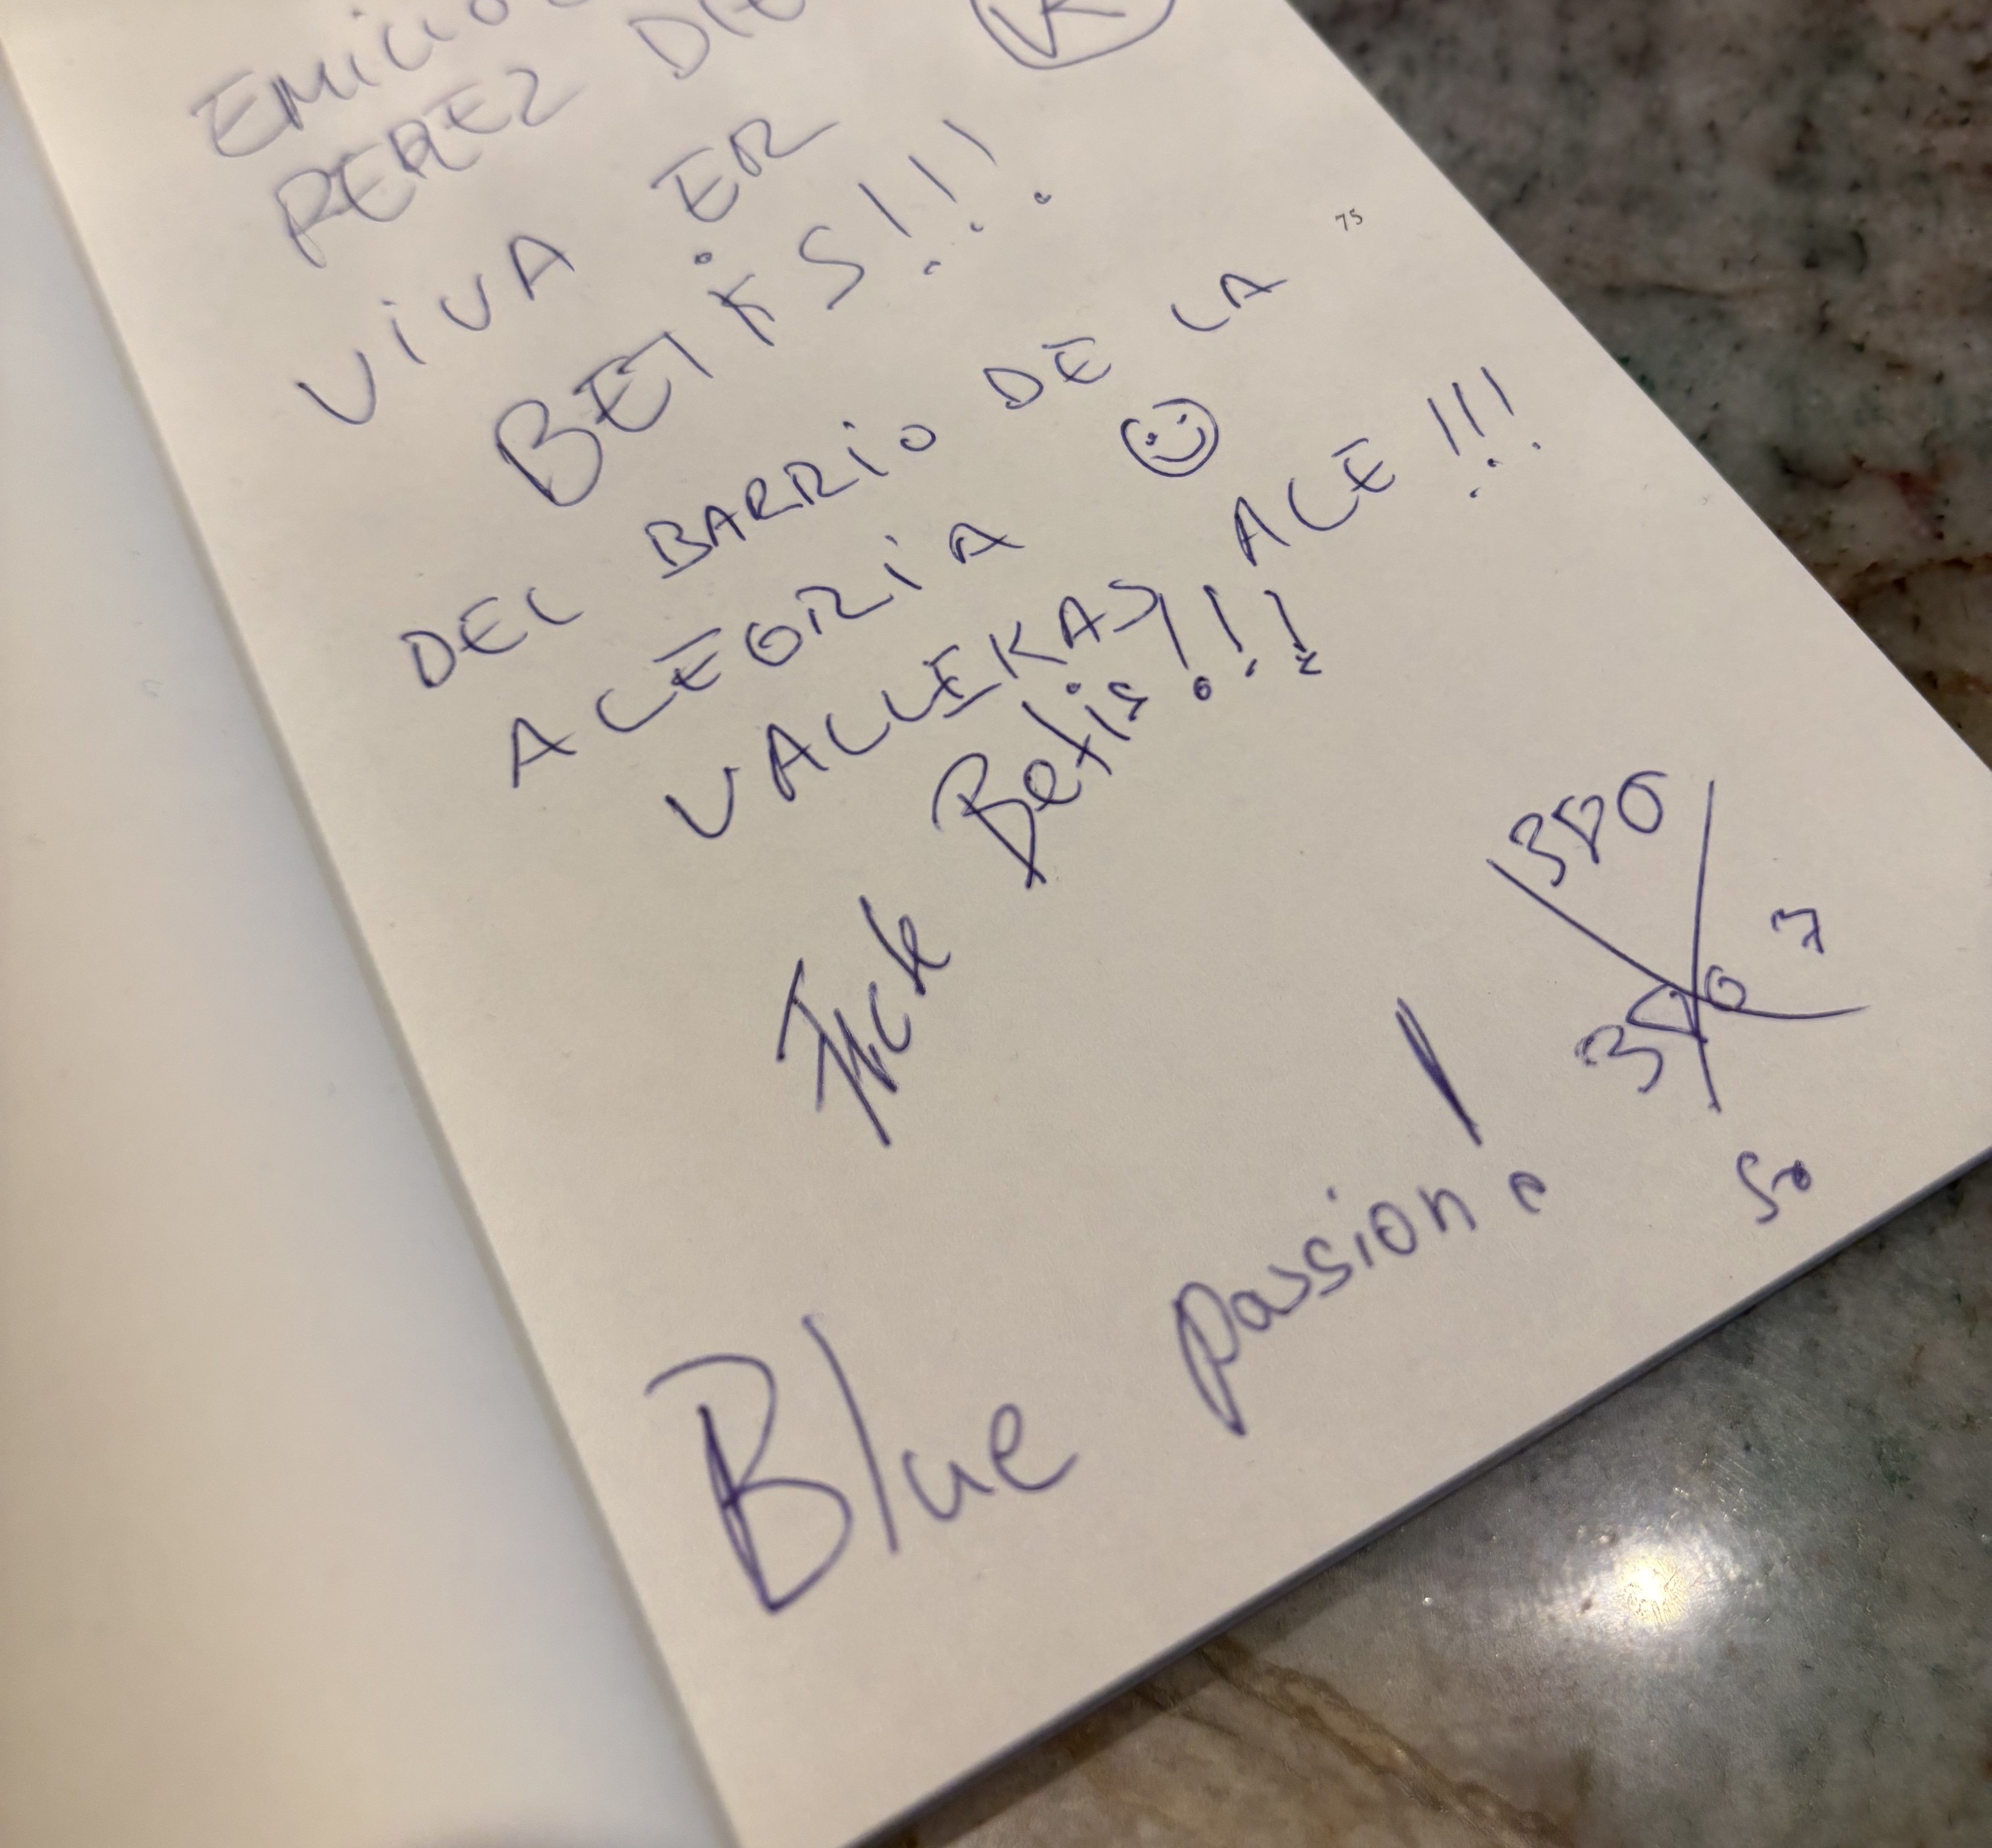 EMILIO
PEREZ
VIVA ER
BETIS!!!
75
DEL BARRIO DE LA
ALEGRIA
VALLEKAS ALE!!!
Fuck Betis!!!
Blue passion!